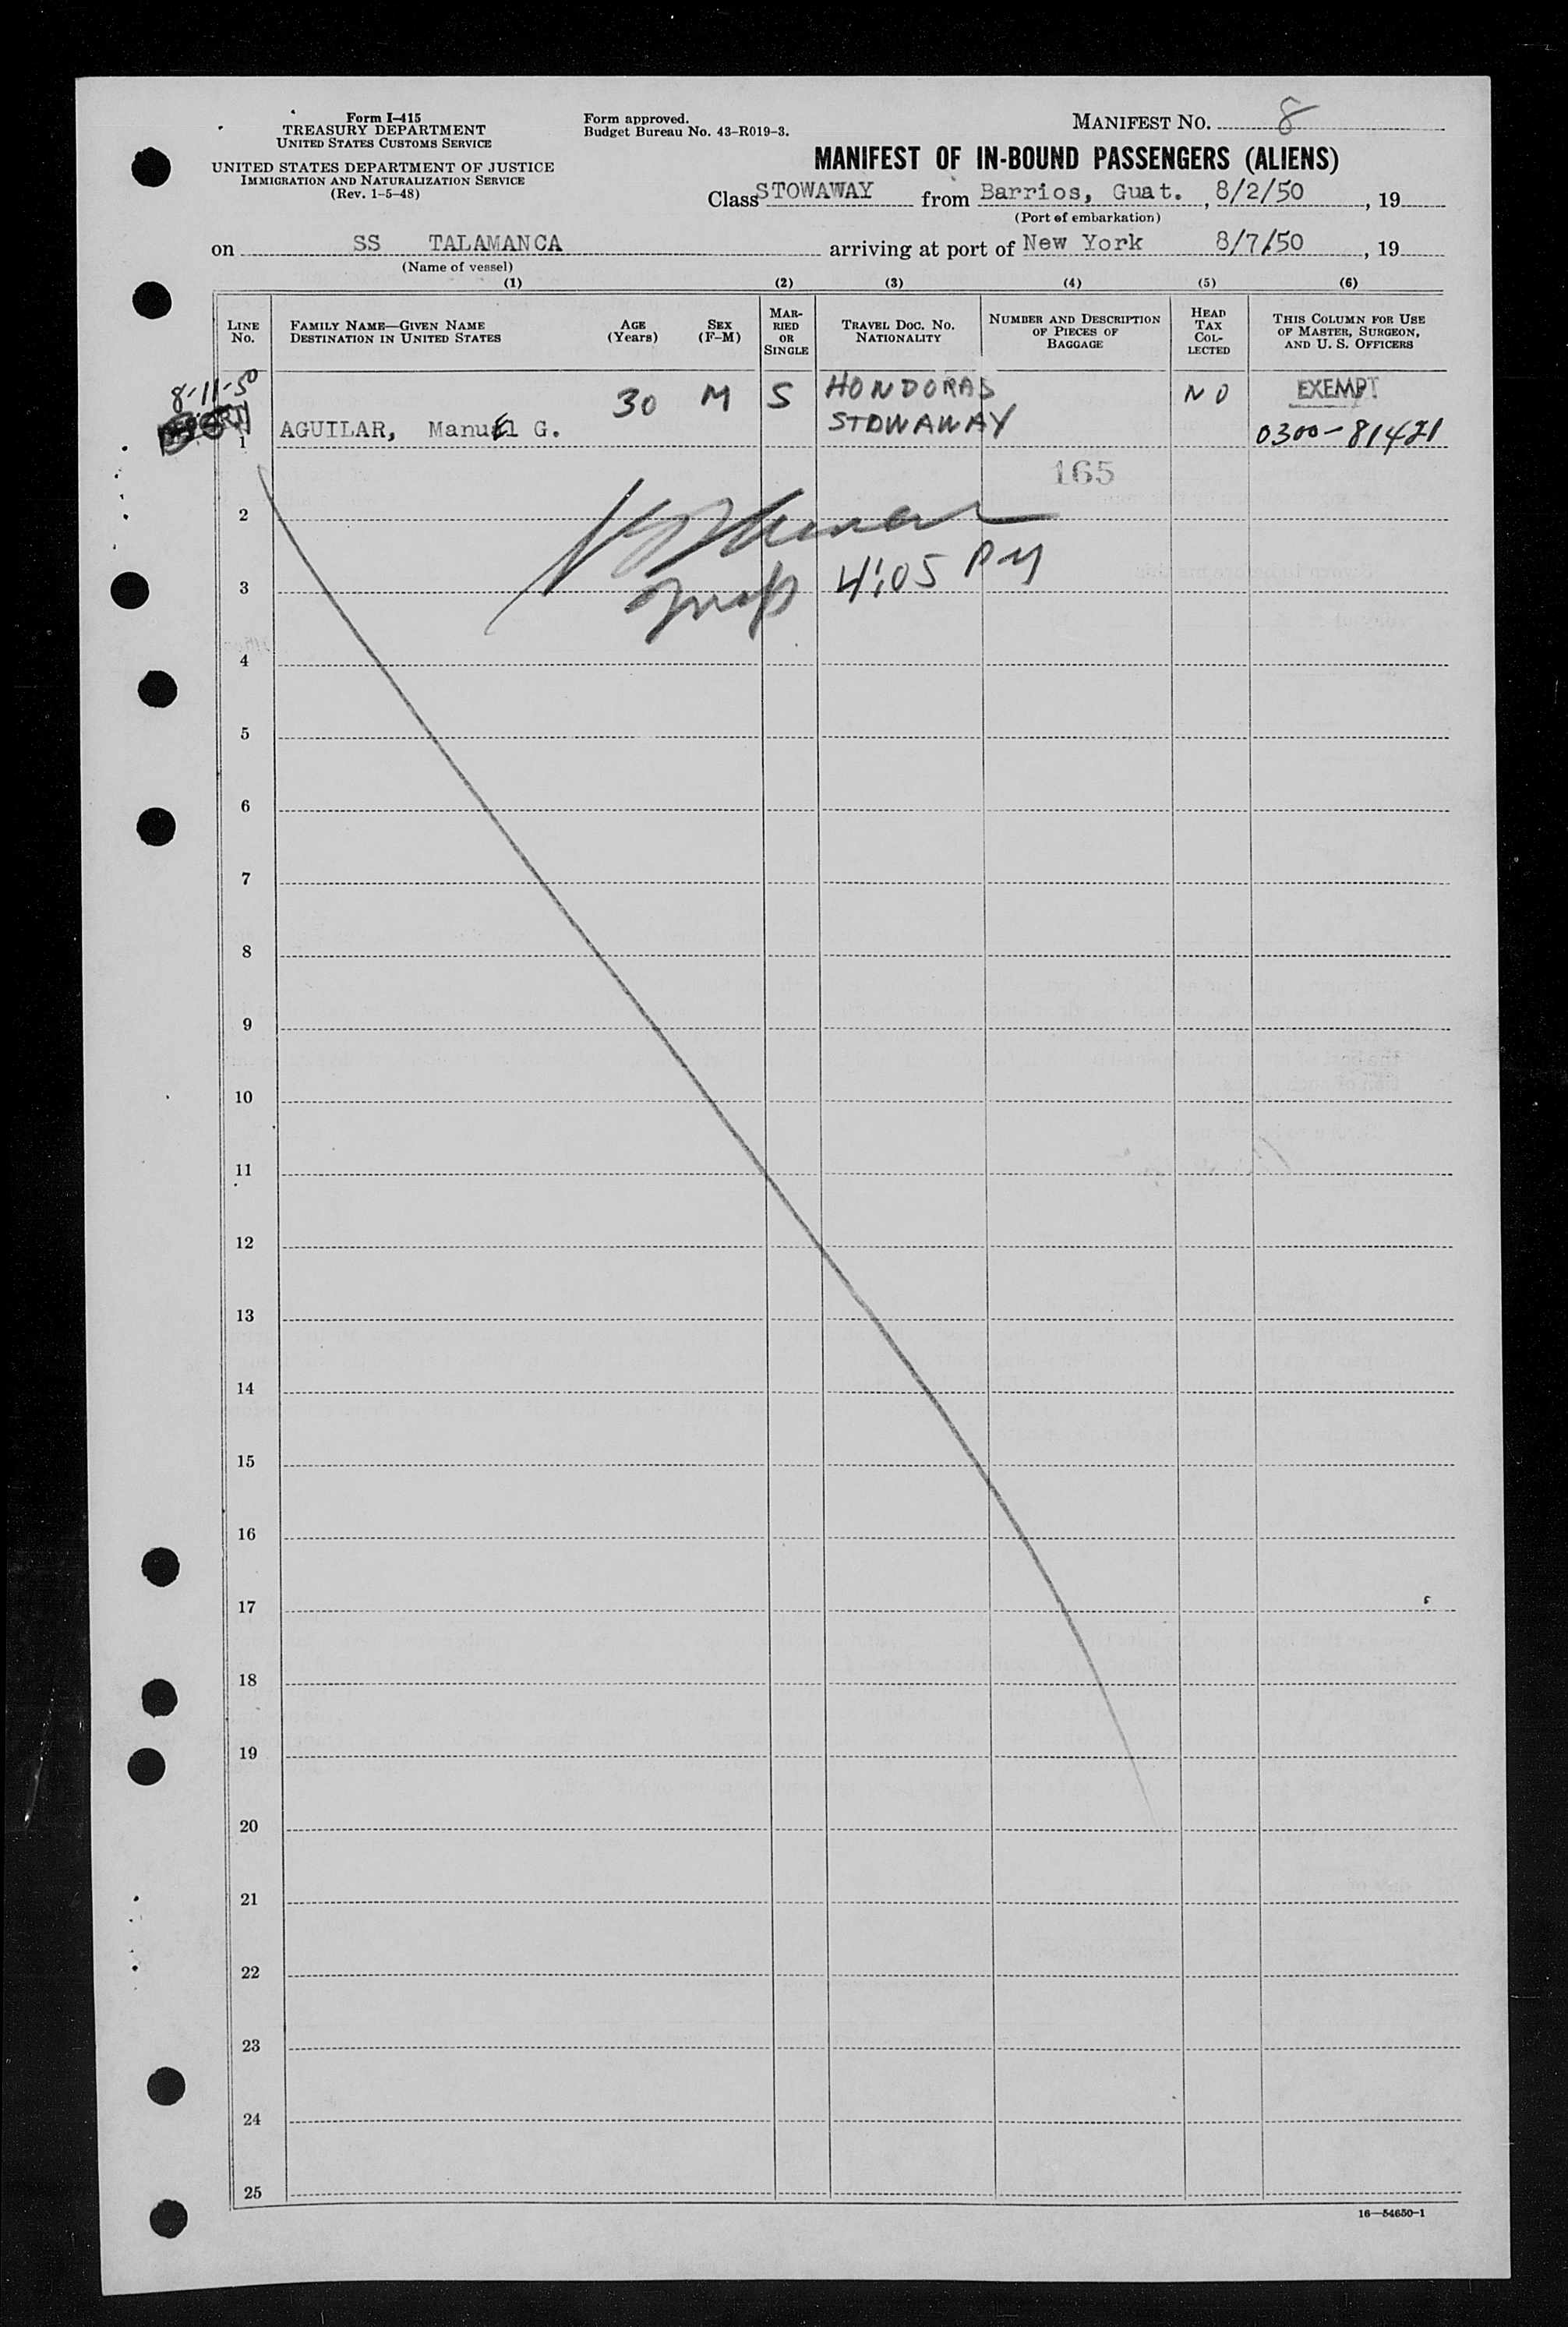 Form I-415
TREASURY DEPARTMENT
UNITED STATES CUSTOMS SERVICE
UNITED STATES DEPARTMENT OF JUSTICE
IMMIGRATION AND NATURALIZATION SERVICE
(Rev. 1-5-48)
Form approved.
Budget Bureau No. 43-R019-3.
MANIFEST NO. 8
MANIFEST OF IN-BOUND PASSENGERS (ALIENS)
Class STOWAWAY from Barrios, Guat. , 8/2/50 , 19
(Port of embarkation)
on SS TALAMANCA arriving at port of New York 8/7/50 , 19
(Name of vessel)
(1) (2) (3) (4) (5) (6)
LINE No.
FAMILY NAME—GIVEN NAME
DESTINATION IN UNITED STATES
AGE (Years)
SEX (F-M)
MARRIED OR SINGLE
TRAVEL DOC. NO. NATIONALITY
NUMBER AND DESCRIPTION OF PIECES OF BAGGAGE
HEAD TAX COLLECTED
THIS COLUMN FOR USE OF MASTER, SURGEON, AND U. S. OFFICERS
8-11-50
30 M S HONDORAS NO EXEMPT
1 AGUILAR, ManuEl G. STOWAWAY 0300-81421
165
2
4:05 PM
3
4
5
6
7
8
9
10
11
12
13
14
15
16
17
18
19
20
21
22
23
24
25
16—54650-1